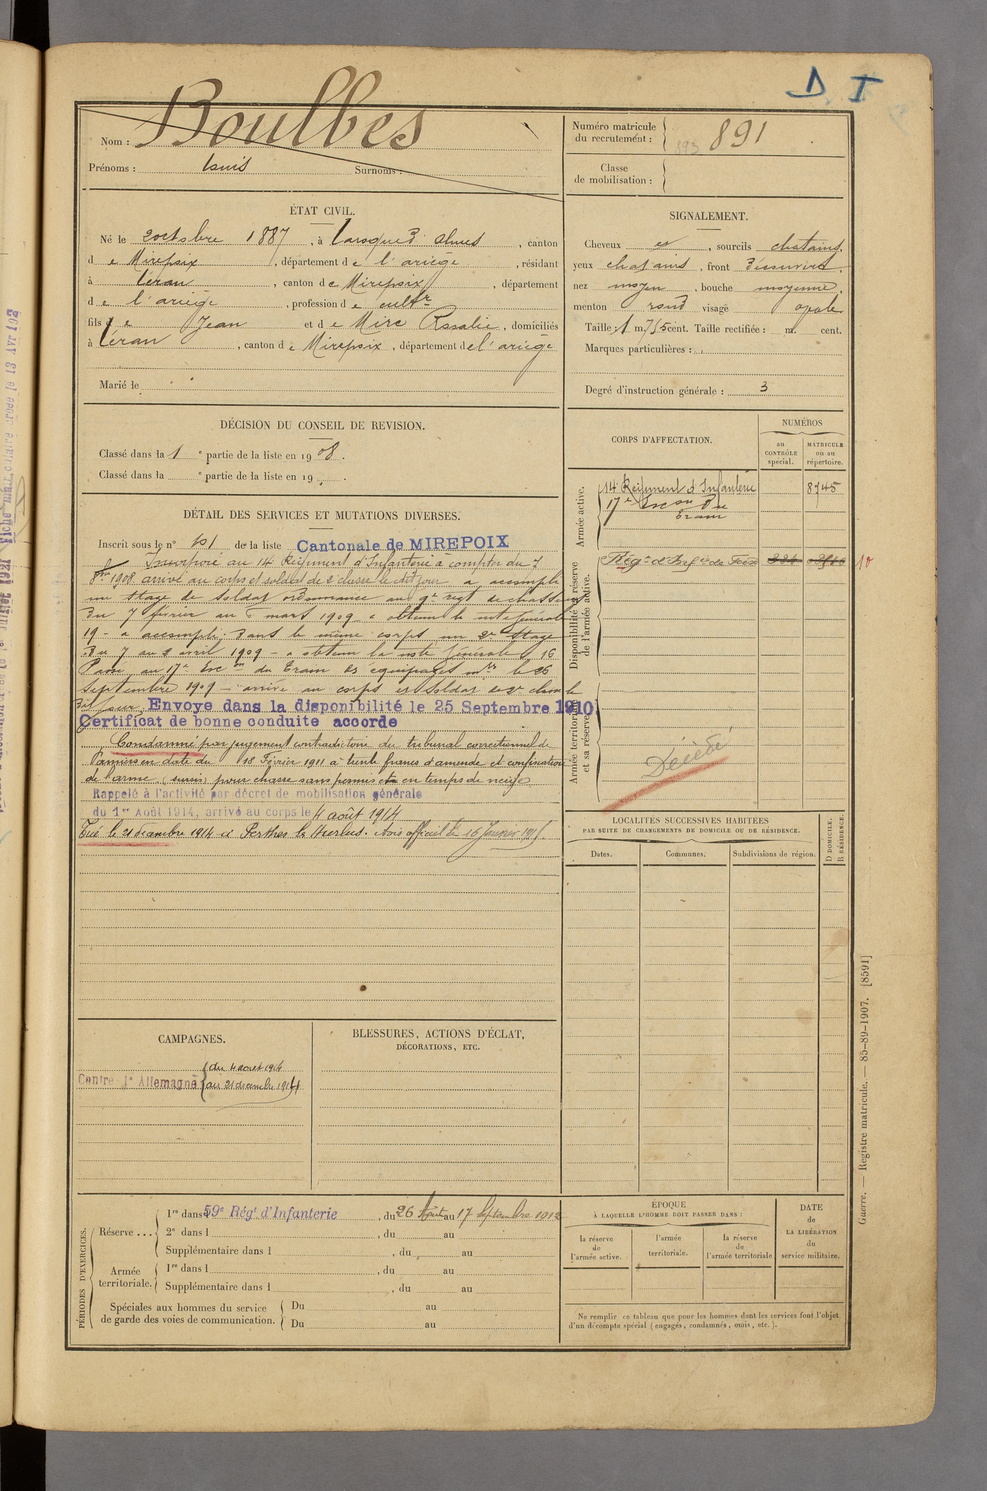 D I
Nom : Boulbès
Prénoms : Louis Surnoms :
Numéro matricule du recrutement : 893 891
Classe de mobilisation :
ÉTAT CIVIL.
Né le 2 octobre 1887, à Laroque d'Olmes, canton
de Mirepoix, département de l'ariège, résidant
à Léran, canton de Mirepoix, département
de l'ariège, profession de cultr
fils de Jean et de Mirc Rosalie, domiciliés
à Léran, canton de Mirepoix, département de l'ariège
Marié le
SIGNALEMENT.
Cheveux et, sourcils chatains,
yeux chatains, front découvert,
nez moyen, bouche moyenne,
menton rond visage ovale
Taille : 1 m. 75 cent. Taille rectifiée : m. cent.
Marques particulières :
Degré d'instruction générale : 3
DÉCISION DU CONSEIL DE REVISION.
Classé dans la 1e partie de la liste en 1908.
Classé dans la e partie de la liste en 19 .
DÉTAIL DES SERVICES ET MUTATIONS DIVERSES.
Inscrit sous le n° 51 de la liste Cantonale de MIREPOIX
Incorporé au 14 Régiment d'Infanterie à compter du 7
8bre 1908 arrivé au corps et soldat de 2e classe le dit jour a accompli
un stage de soldat ordonnance au 9e regt de chasseurs
du 7 février au 8 mars 1909 a obtenu la note générale
19 - a accompli dans le même corps un 2e stage
du 7 au 2 avril 1909 - a obtenu la note générale 16
Passé au 17e Escon du Train des équipages mres le 26
septembre 1909 - arrivé au corps et soldat de 2e classe le
dit jour. Envoyé dans la disponibilité le 25 Septembre 1910
Certificat de bonne conduite accordé
Condamné par jugement contradictoire du tribunal correctionnel de
Pamiers en date du 18 Février 1911 à trente francs d'amende et confiscation
de l'arme (sursis) pour chasse sans permis et en temps de neige
Rappelé à l'activité par décret de mobilisation générale
du 1er Août 1914, arrivé au corps le 4 août 1914
Tué le 21 décembre 1914 à Perthes les Hurlus. Avis officiel du 16 Janvier 1915.
CORPS D'AFFECTATION.
NUMÉROS
au CONTRÔLE spécial.
MATRICULE ou au répertoire.
Armée active.
14 Régiment d'Infanterie 8745
17e Escon du Train
Disponibilité et réserve de l'armée active.
Régt d'Infie de Foix
10
Armée territoriale et sa réserve.
Décédé
LOCALITÉS SUCCESSIVES HABITÉES
PAR SUITE DE CHANGEMENTS DE DOMICILE OU DE RÉSIDENCE.
Dates. Communes. Subdivisions de région.
D DOMICILE. R RÉSIDENCE.
CAMPAGNES.
Contre l'Allemagne du 4 août 1914
au 21 décembre 1914
BLESSURES, ACTIONS D'ÉCLAT,
DÉCORATIONS, ETC.
PÉRIODES D'EXERCICES.
Réserve ...
1re dans l 59e Régt d'Infanterie, du 26 Août au 17 Septembre 1912
2e dans l , du au
Supplémentaire dans l , du au
Armée territoriale.
1re dans l , du au
Supplémentaire dans l , du au
Spéciales aux hommes du service
de garde des voies de communication.
Du au
Du au
ÉPOQUE
À LAQUELLE L'HOMME DOIT PASSER DANS :
la réserve de l'armée active.
l'armée territoriale.
la réserve de l'armée territoriale
DATE de LA LIBÉRATION du service militaire.
Ne remplir ce tableau que pour les hommes dont les services font l'objet
d'un décompte spécial (engagés, condamnés, omis, etc.).
Guerre. — Registre matricule. — 85-89-1907. [8591]